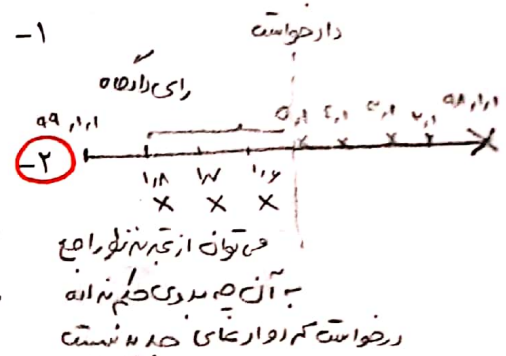 -۱
دادخواست
رای دادگاه
۹۹,۱,۱ ۵,۱ ۴,۱ ۳,۱ ۲,۱ ۹۸,۱,۱
-۲
۱,۸ ۱,۷ ۱,۶
می‌توان از تجدیدنظر راجع
به آن چه بدوی حکم نداده
درخواست کرد و ادعای جدید نیست